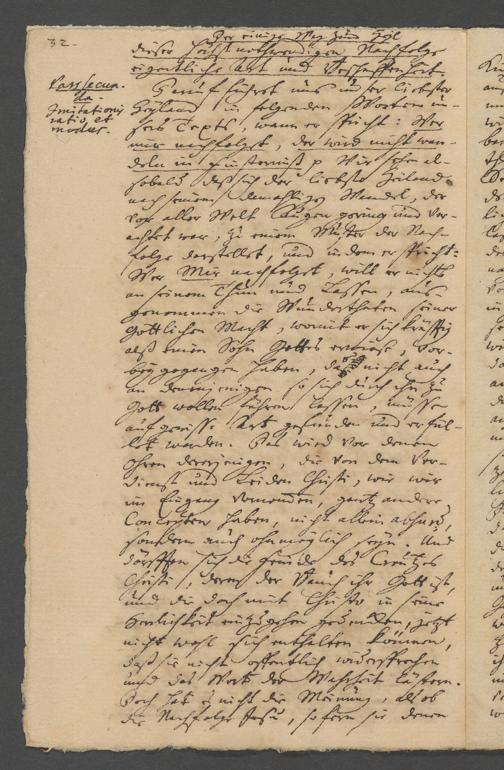 32.
Der einige Weg zum Heyl
dieser höchstnothwendigen Nachfolge
eigentliche Art und Beschaffenheit.
Pars secunda
Imitationis
ratio et
modus.
Hierauf führet uns unser liebster
Heyland in folgenden Worten un-
sers Texts, wann er spricht: Wer
mir nachfolget, der wird nicht wan-
deln in Finsterniß p Wir sehen al-
sobald daß sich der liebste Heiland
nach seinem damahligen Wandel, der
vor aller Welt Augen gering und ver-
achtet war, zu einem Muster der Nach-
folge darstellet, und indem er spricht:
Wer Mir nachfolget, will er nichts
an seinem Thun und Lassen, aus-
genommen die Wunderthaten seiner
Göttlichen Macht, womit er sich kräftig
alß einen Sohn Gottes erwiese, vor-
bey gegangen haben, das nicht auch
an denenjenigen so sich durch ihn zu
Gott wollen führen lassen, müsse
auf gewisse Art gefunden und erfül-
let werden. Das wird vor denen
Ohren derjenigen, die von dem Ver-
dienst und Leiden Christi, wie wir
im Eingang vernommen, gantz andere
Concepten haben, nicht allein absurd,
sondern auch ohnmöglich seyn. Und
dörfften sich die Feinde des Creutzes
Christi, denen der Bauch ihr Gott ist,
und die doch mit Christo in seine
Herrlichkeit einzugehen gedencken, jetzt
nicht wohl sich enthalten können,
daß sie nicht öffentlich widersprechen
und das Wort der Wahrheit lästern.
Doch hat es nicht die Meinung, als ob
die Nachfolge Jesu, so fern sie denen